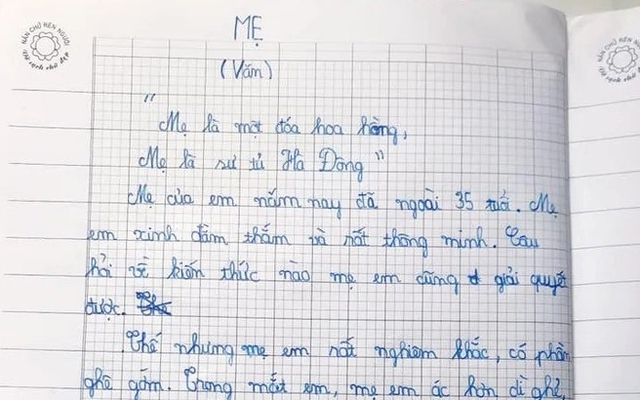 NẮN CHỮ RÈN NGƯỜI
MẸ
(Văn)
"
Mẹ là một đóa hoa hồng,
Mẹ là sư tử Hà Đông"
Mẹ của em năm nay đã ngoài 35 tuổi. Mẹ
em xinh đằm thắm và rất thông minh. Câu
hỏi về kiến thức nào mẹ em cũng giải quyết
được.
Thế nhưng mẹ em rất nghiêm khắc, có phần
ghê gớm. Trong mắt em, mẹ em ác hơn dì ghẻ,